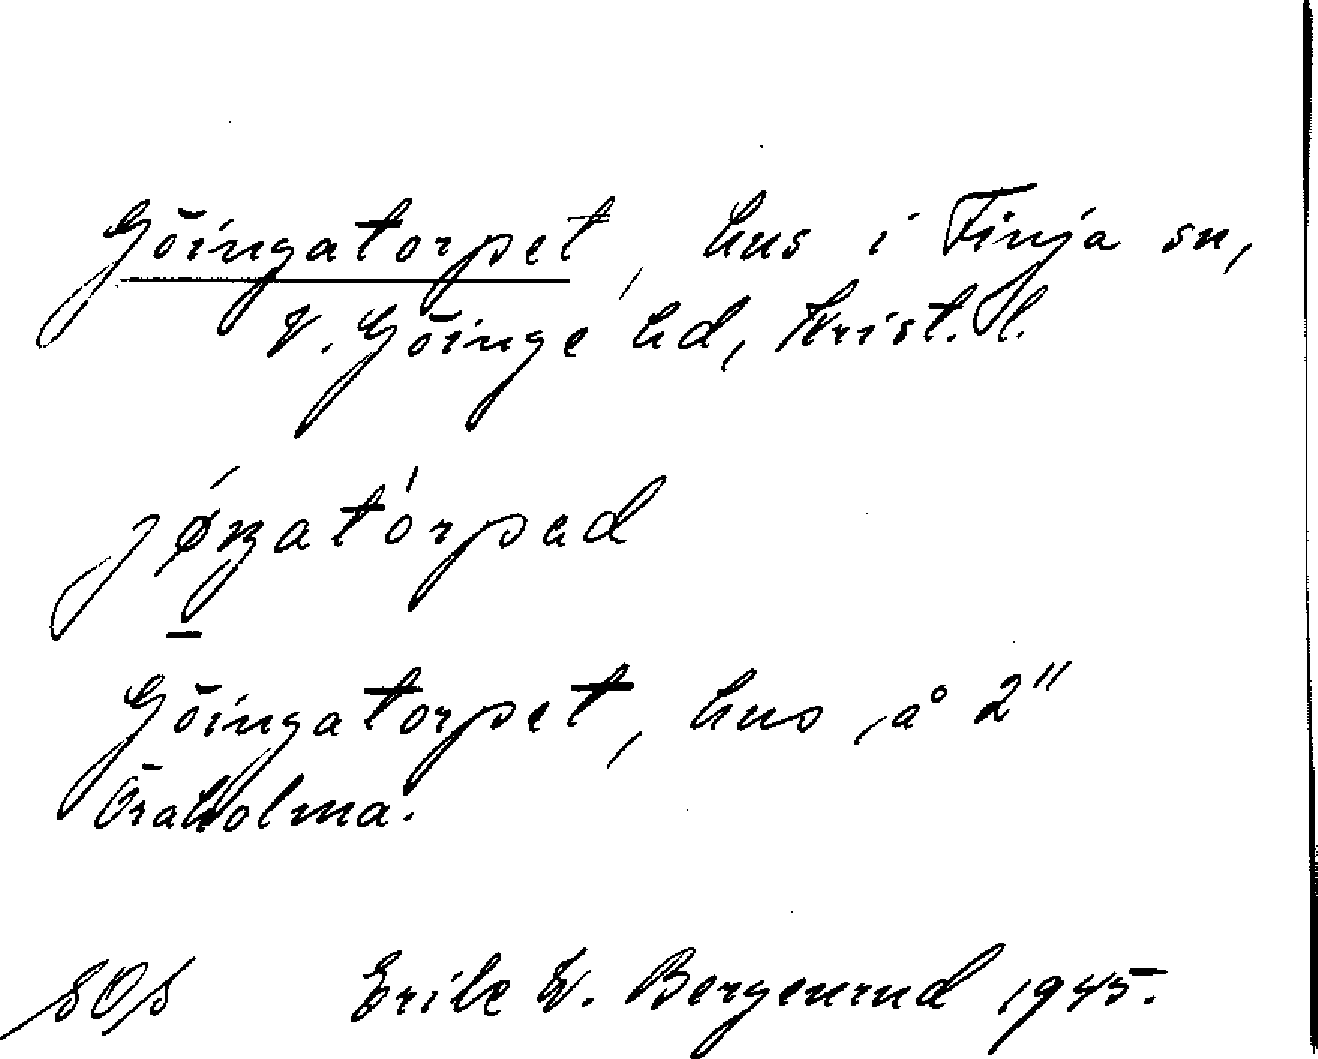 Göingatorpet, hus i Finja sn,
V. Göinge hd, Krist. l.
jøŋatórpad
Göingatorpet, hus å 2"
Öraholma.
SOS Erik W. Bergenrud 1945.